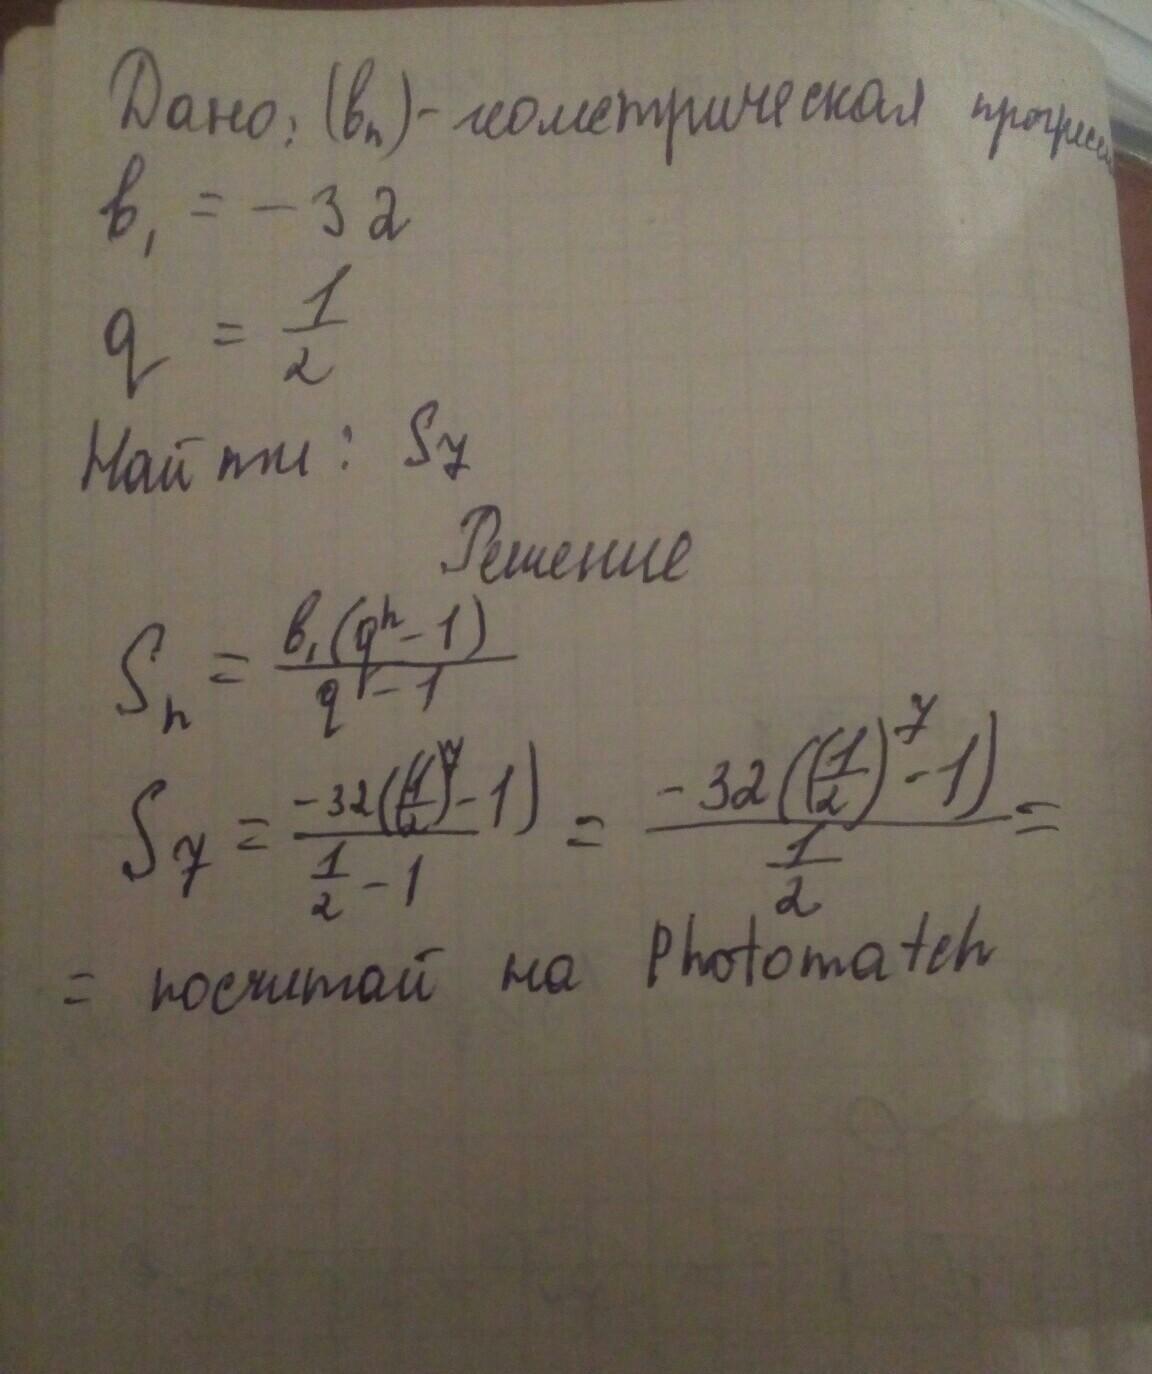 Дано: (bₙ) - геометрическая прогресси
b₁ = -32
q = 1/2
Найти: S₇
Решение
Sₙ = b₁(qⁿ - 1) / q - 1
S₇ = -32((1/2)⁷ - 1) / 1/2 - 1 = -32((1/2)⁷ - 1) / 1/2 =
= посчитай на Photomatch